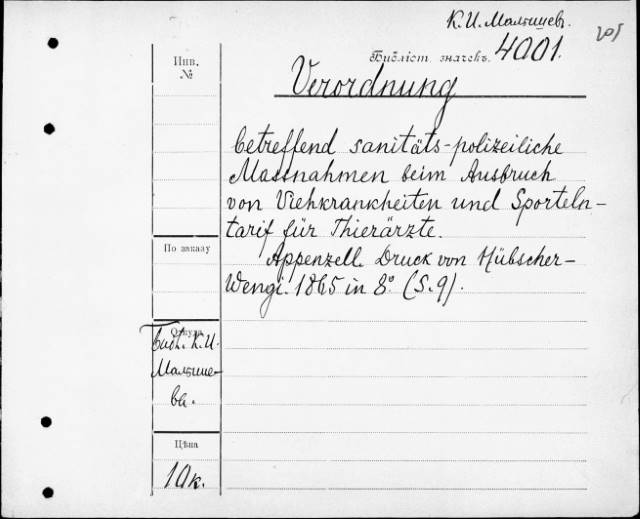 К. И. Малышевъ.
205
Библіот. значекъ. 4001.
Инв.
№
Verordnung
betreffend sanitäts-polizeiliche
Massnahmen beim Ausbruch
von Viehkrankheiten und Sporteln-
tarif für Thierärzte.
Appenzell. Druck von Hübscher-
Wengi. 1865 in 8° (S. 9).
По заказу
Откуда
Библ. К. И.
Малыше-
ва.
Цѣна
10 к.